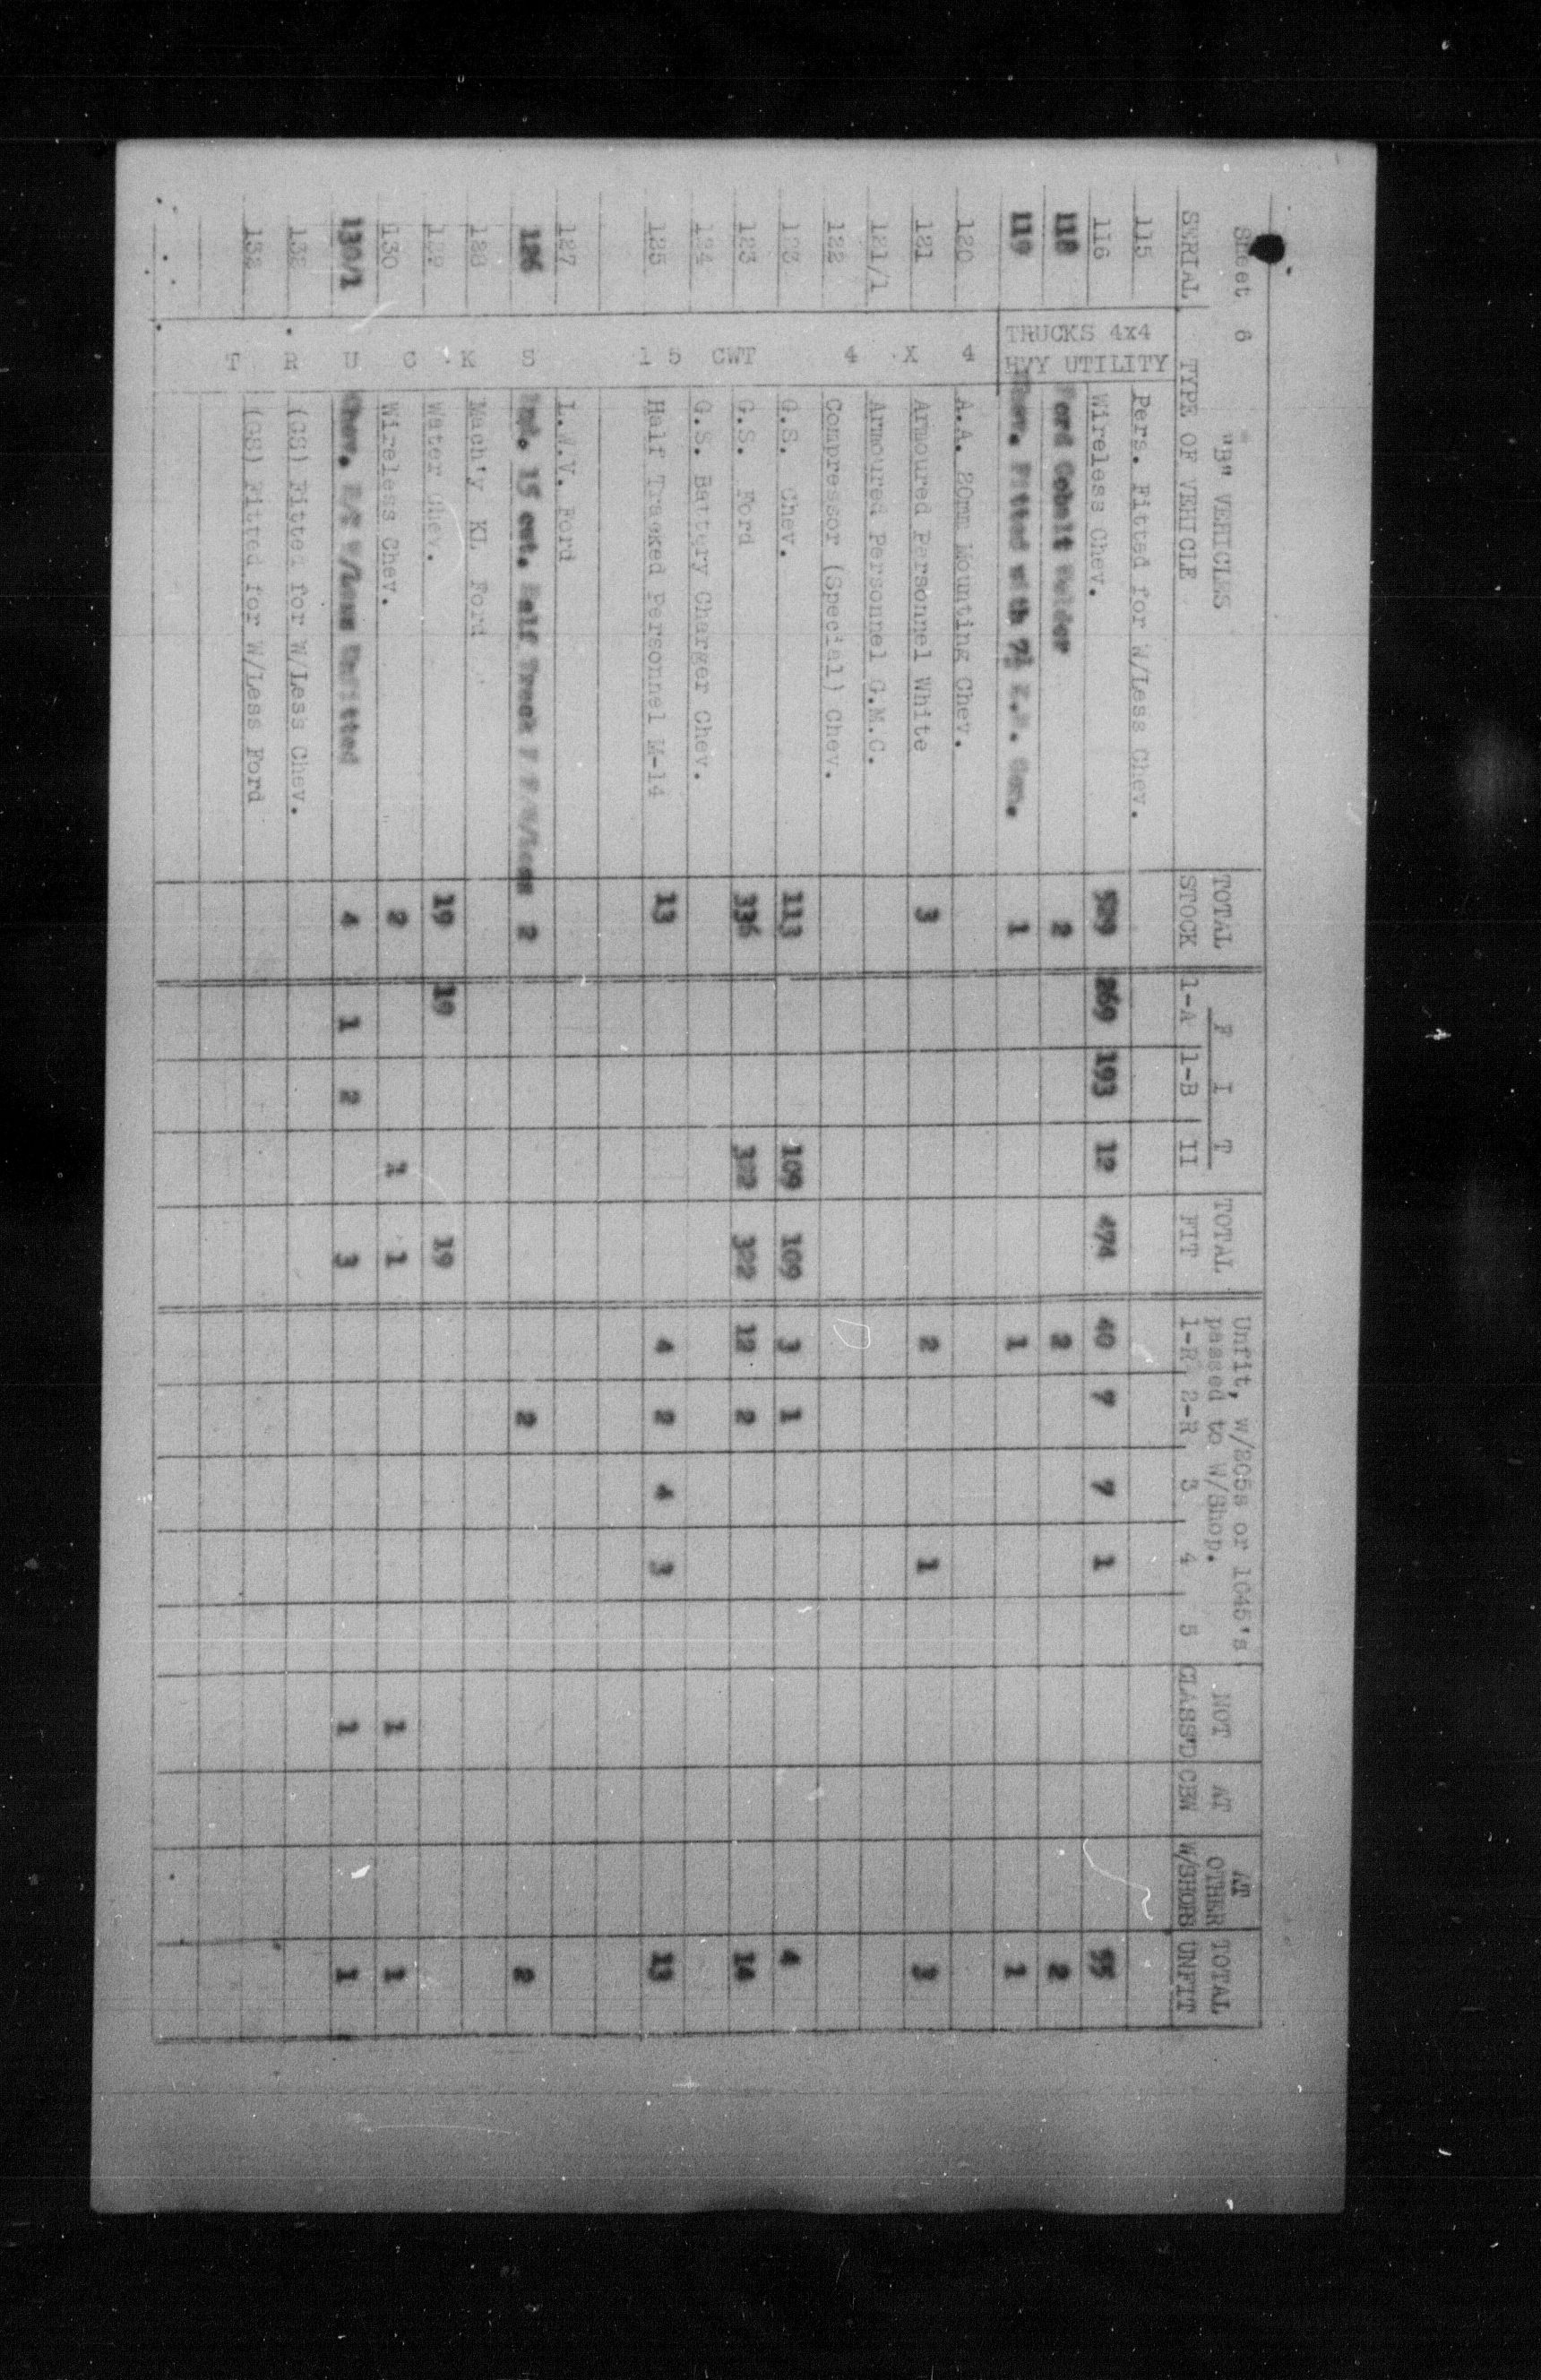 Sheet 6 "B" VEHICLES
SERIAL TYPE OF VEHICLE TOTAL STOCK F I T 1-A 1-B II TOTAL FIT Unfit, W/805s or 1045's passed to W/Shop. 1-R 2-R 3 4 5 NOT CLASS'D AT CBW AT OTHER W/SHOPS TOTAL UNFIT
TRUCKS 4x4
HVY UTILITY
115 Pers. Fitted for W/Less Chev.
116 Wireless Chev. 529 269 193 12 474 40 7 7 1 55
118 Ford Cobolt Welder 2 2 2
119 Chev. Fitted with 7½ K.W. Gen. 1 1 1
T R U C K S 15 CWT 4 X 4
120 A.A. 20mm Mounting Chev.
121 Armoured Personnel White 3 2 1 3
121/1 Armoured Personnel G.M.C.
122 Compressor (Special) Chev.
123 G.S. Chev. 113 109 109 3 1 4
123 G.S. Ford 336 322 322 12 2 14
124 G.S. Battery Charger Chev.
125 Half Tracked Personnel M-14 13 4 2 4 3 13
127 L.W.V. Ford
126 Int. 15 cwt. Half Track F F/W/Less 2 2 2
128 Mach'y KL Ford
129 Water Chev. 19 19 19
130 Wireless Chev. 2 1 1 1 1
130/1 Chev. W/Less Unfitted 4 1 2 3 1 1
132 (GS) Fitted for W/Less Chev.
132 (GS) Fitted for W/Less Ford